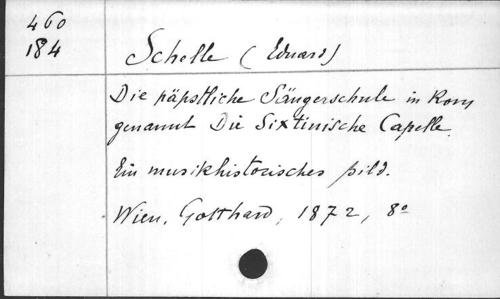 460
184
Schelle (Eduard)
Die päpstliche Sängerschule in Rom
genannt Die Sixtinische Capelle.
Ein musikhistorisches bild.
Wien, Gotthard, 1872, 8º